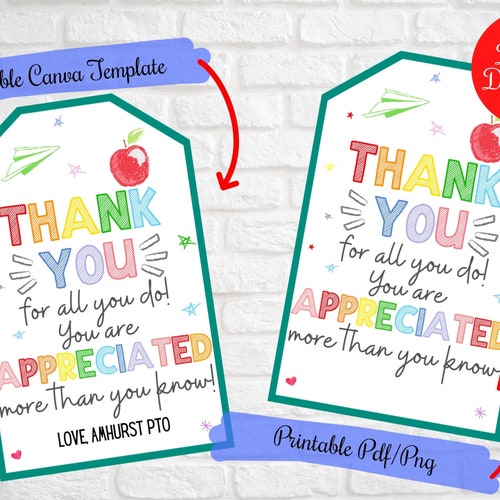 Canva Template
THANK
YOU
for all you do!
You are
APPRECIATED
more than you know!
LOVE, AMHURST PTO
THANK
YOU
for all you do!
You are
APPRECIATED
more than you know
Printable Pdf/Png